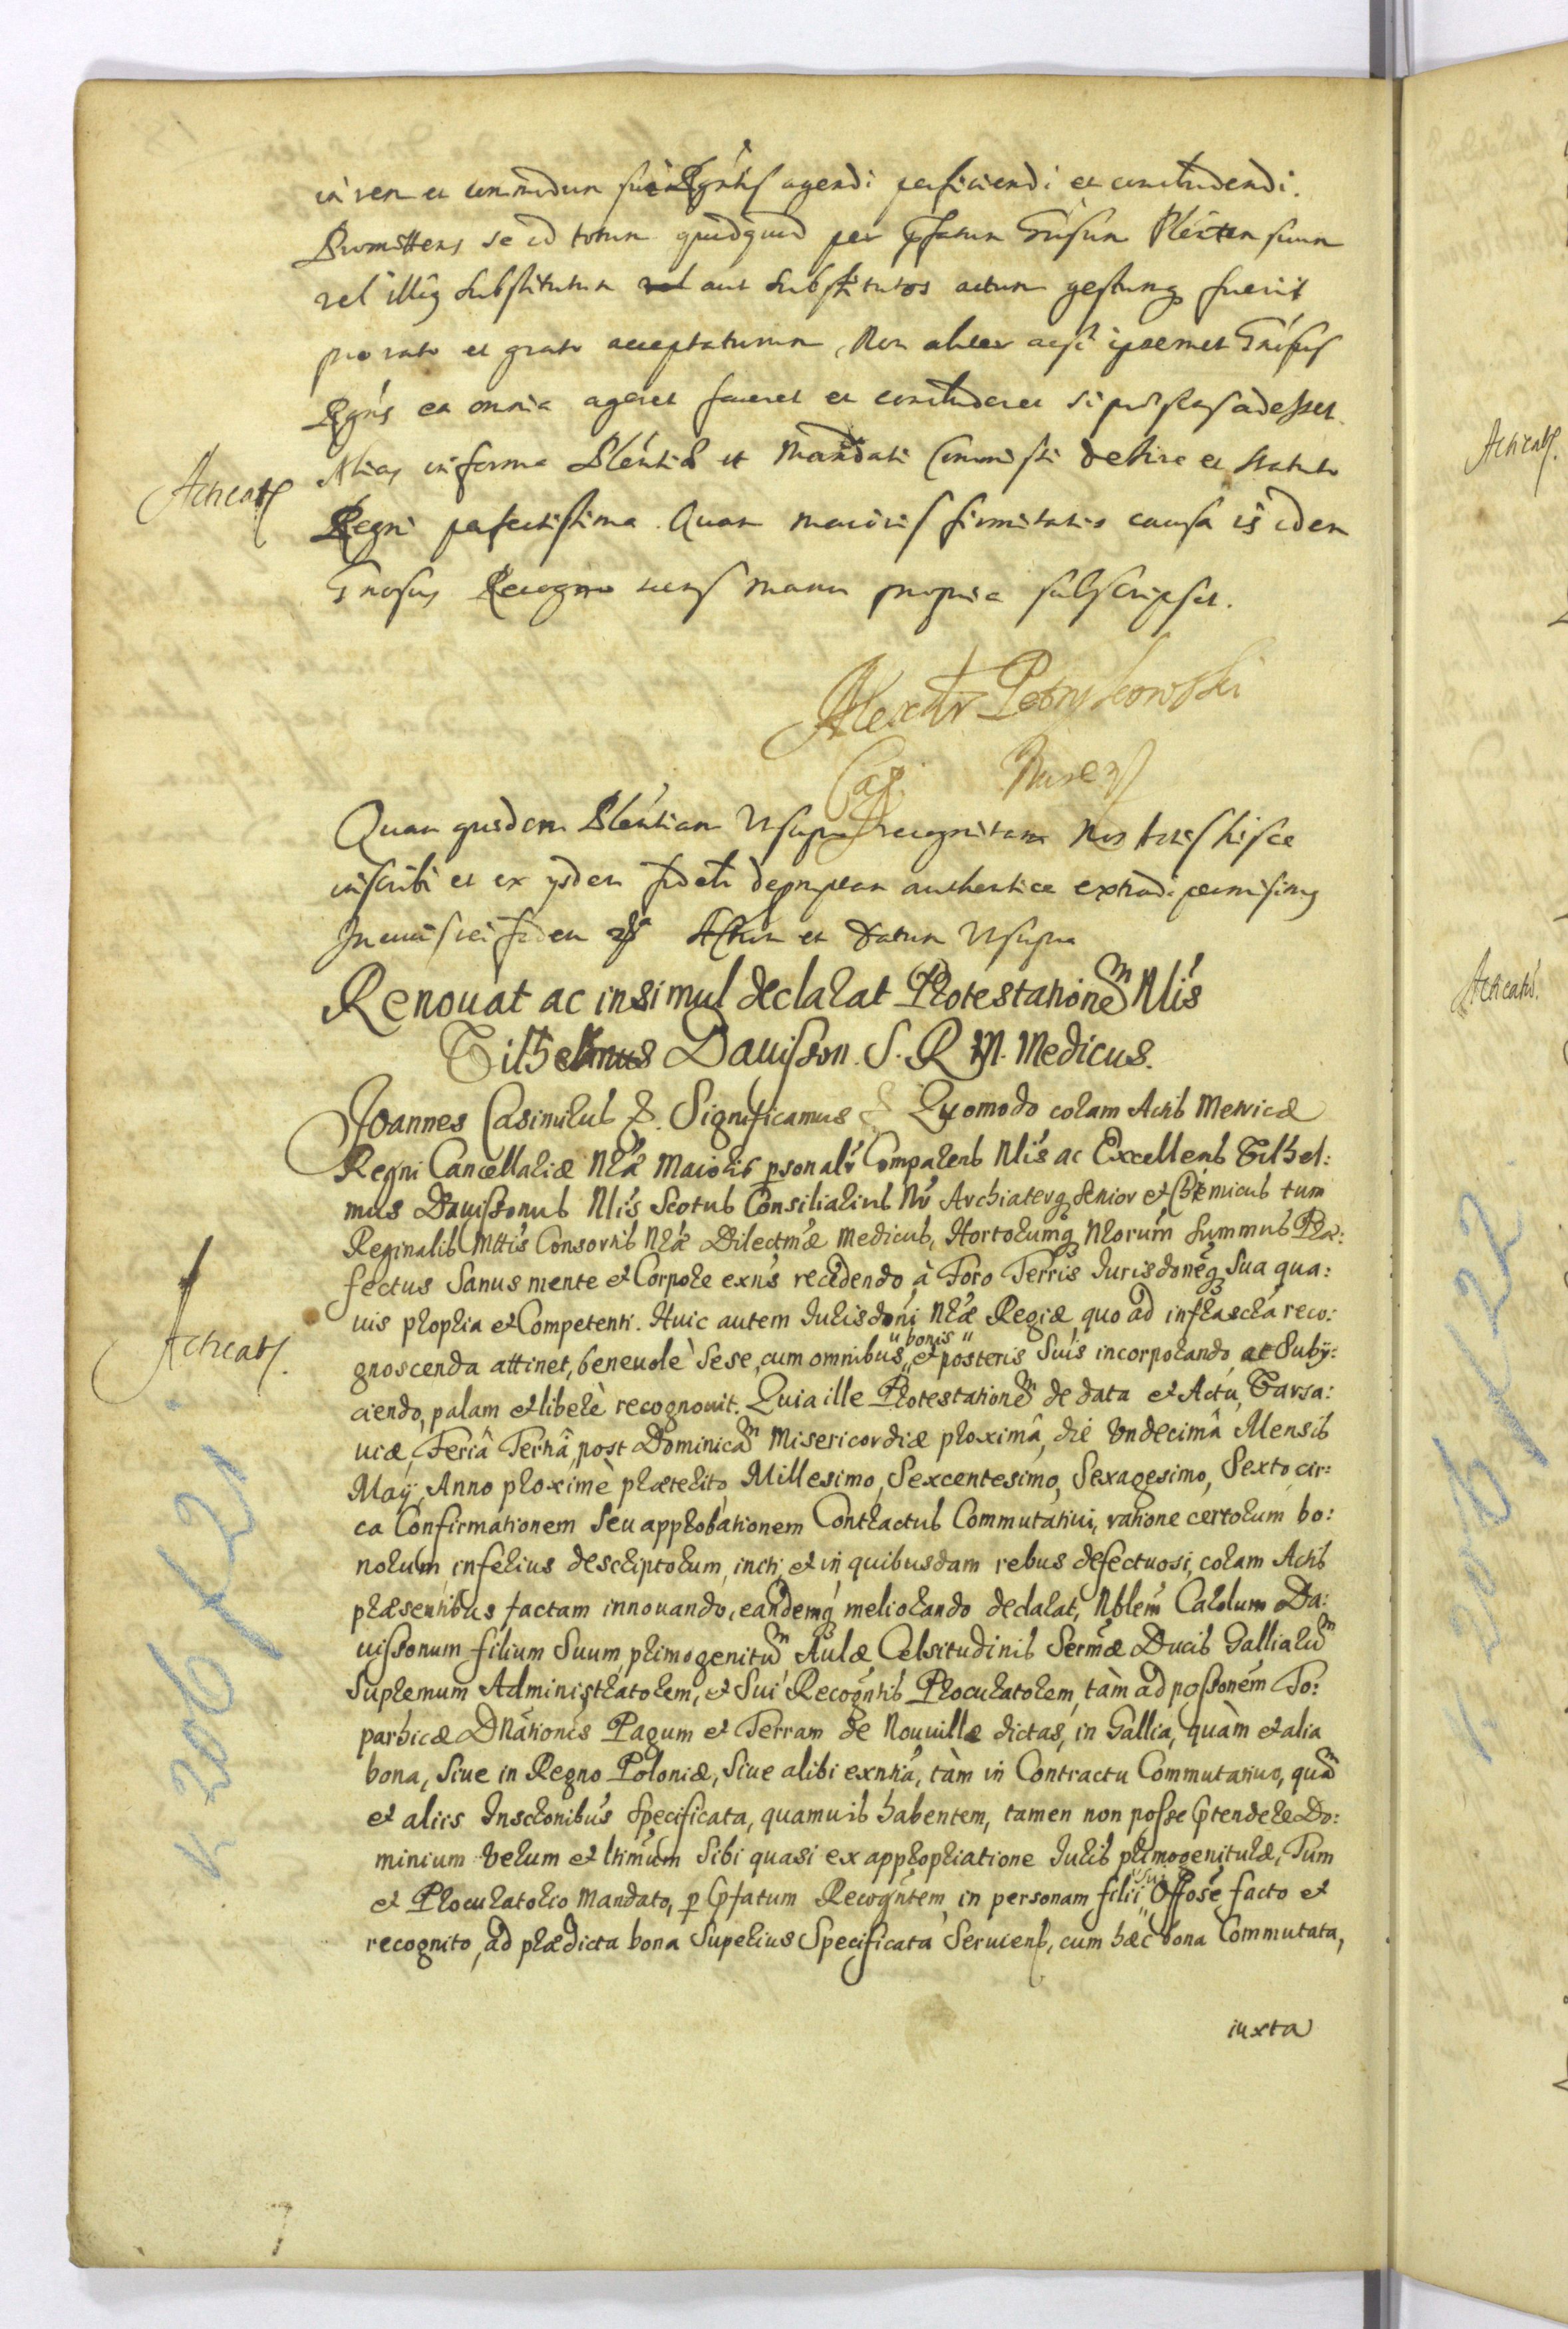 in rem et commodum sui Rgntis agendi perficiendi et concludendi.
Promittens se id totum quidquid per pfatum Gnsum Plenten suum
vel illius substitutum aut substitutos actum gestumq fuerit
pro rato et grato accepturum, Non aliter acsi ipsemet Gnsus
Rgns ea omnia ageret faceret et concluderet si adesset
Alias in forma Plentia et Mandati de Jure et Statuto
Regni perfectissima. Quam maioris firmitatis causa is idem
Gnosus Recognoscens manu propria subscripsit.
Acticat
Alexandr
Cap.
Quam quidem Plentiam Vtsupra recognitam Nos Actis hisce
inscribi et ex ysdem fideli depromptam authentice extradi permisimus
In cuius rei fidem Actum et Datum Vtsupra
Renouat ac insimul declarat Protestationem Nlis
Vilhelmus Dauisson. S. R. M. Medicus.
Joannes Casimirus &. Significamus & Quomodo coram Actis Metricæ
Regni Cancellariæ Nræ Maioris psonalr Comparens Nlis ac Excellens Vilhel:
mus Dauissonus Nlis Scotus Consiliarius Nr Archiaterq Senior et Chiemicus tum
Reginalis Mttis Consortis Nræ Dilectmæ Medicus, Hortorumq Nrorum Summus Præ:
fectus Sanus mente et Corpore exns recedendo à Foro Terris Jurisdoneq Sua qua:
uis propria et Competenti. Huic autem Jurisdoni Nræ Regiæ, quo ad infrascra reco:
gnoscenda attinet, beneuolè Sese, cum omnibus "bonis" et posteris Suis incorporando at Subij:
ciendo, palam et liberè recognouit. Quia ille Protestationem de data et Actu, Varsa:
uiæ Feriâ Tertiâ, post Dominicam Misericordiæ proximâ, die Vndecimâ Mensis
Maÿ, Anno proximè præterito, Millesimo, Sexcentesimo, Sexagesimo, Sexto, cir:
ca Confirmationem Seu approbationem Contractus Commutatiui, ratione certorum bo:
norum inferius descriptorum, initi, et in quibusdam rebus defectuosi, coram Actis
præsentibus factam innouando, eandemq meliorando declarat, Nblem Carolum Da:
uissonum filium Suum primogenitum Aulæ Celsitudinis Sermæ Ducis Galliarum
Supremum Administratorem, et Sui Recogntis Procuratorem, tàm ad possonem To:
parhicæ Dnationis Pagum et Terram de Nouuillæ dictas, in Gallia, quàm et alia
bona, Siue in Regno Poloniæ, Siue alibi exntia, tàm in Contractu Commutatiuo, quam
et aliis Inscronibus Specificata, quamuis habentem, tamen non posse ptendere Do:
minium Verum et ltimum Sibi quasi ex appropriatione Juris primogenituræ, Tum
et Procuratorio Mandato, p pfatum Recogntem in personam filii "sui" Offose facto et
recognito, ad prædicta bona Superius Specificata Seruiens, cum hæc bona Commutata,
iuxta
Acticat.
K 206 f 21.
7
Acticat.
Acticatu.